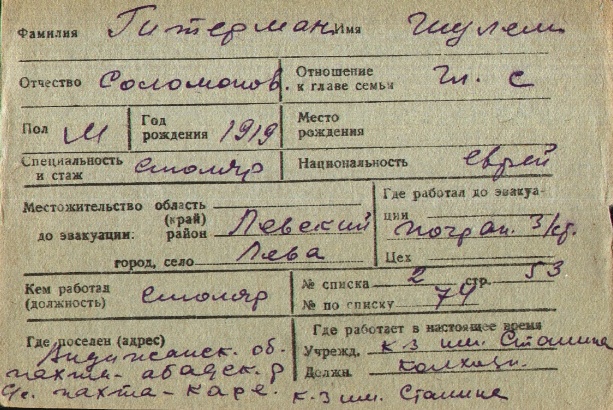 Фамилия Гитерман Имя Шулем
Отчество Соломонов. Отношение к главе семьи гл. с
Пол М Год рождения 1919 Место рождения
Специальность и стаж столяр Национальность еврей
Местожительство область (край)
до эвакуации: район Левский
город, село Лева
Где работал до эвакуации погран. з/
Цех
Кем работал (должность) столяр
№ списка 2 стр. 53
№ по списку 74
Где поселен (адрес)
Андижанск. об.
пахта-абадск. р
с/с. пахта-
Где работает в настоящее время
Учрежд. к-з им. Сталина
Должн. колхозн.
к-з им. Сталина